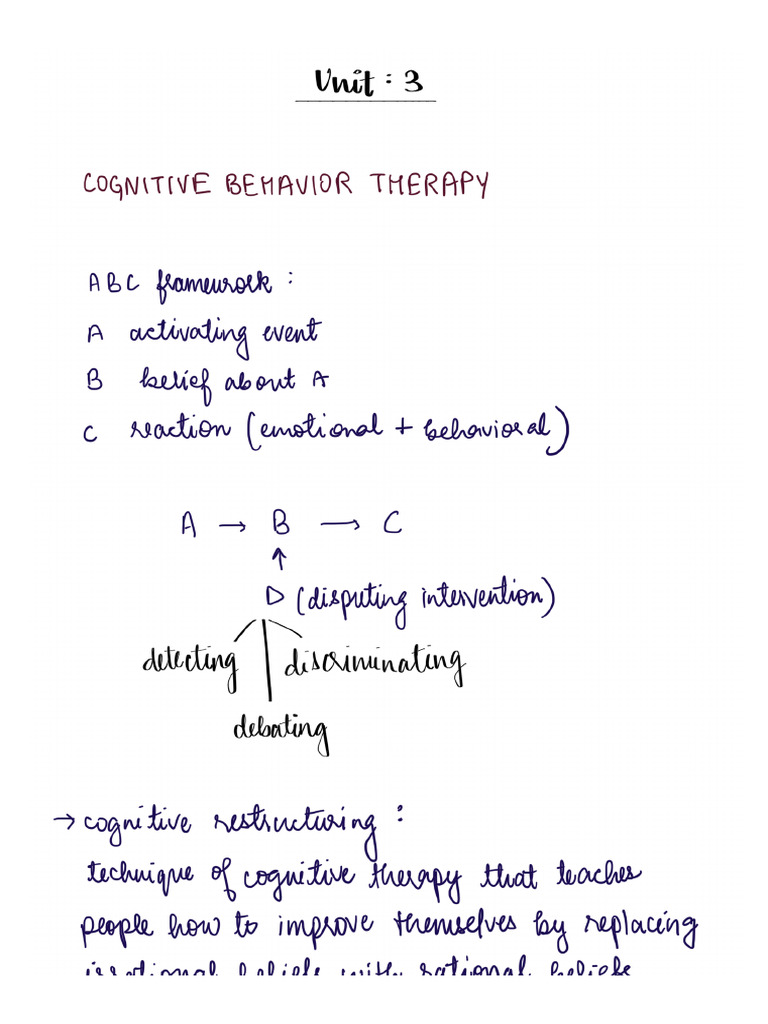 Unit : 3
COGNITIVE BEHAVIOR THERAPY
ABC framework :
A activating event
B belief about A
C reaction (emotional + behavioral)
A → B → C
↑
D (disputing intervention)
detecting discriminating
debating
→ cognitive restructuring :
technique of cognitive therapy that teaches
people how to improve themselves by replacing
irrational beliefs with rational beliefs